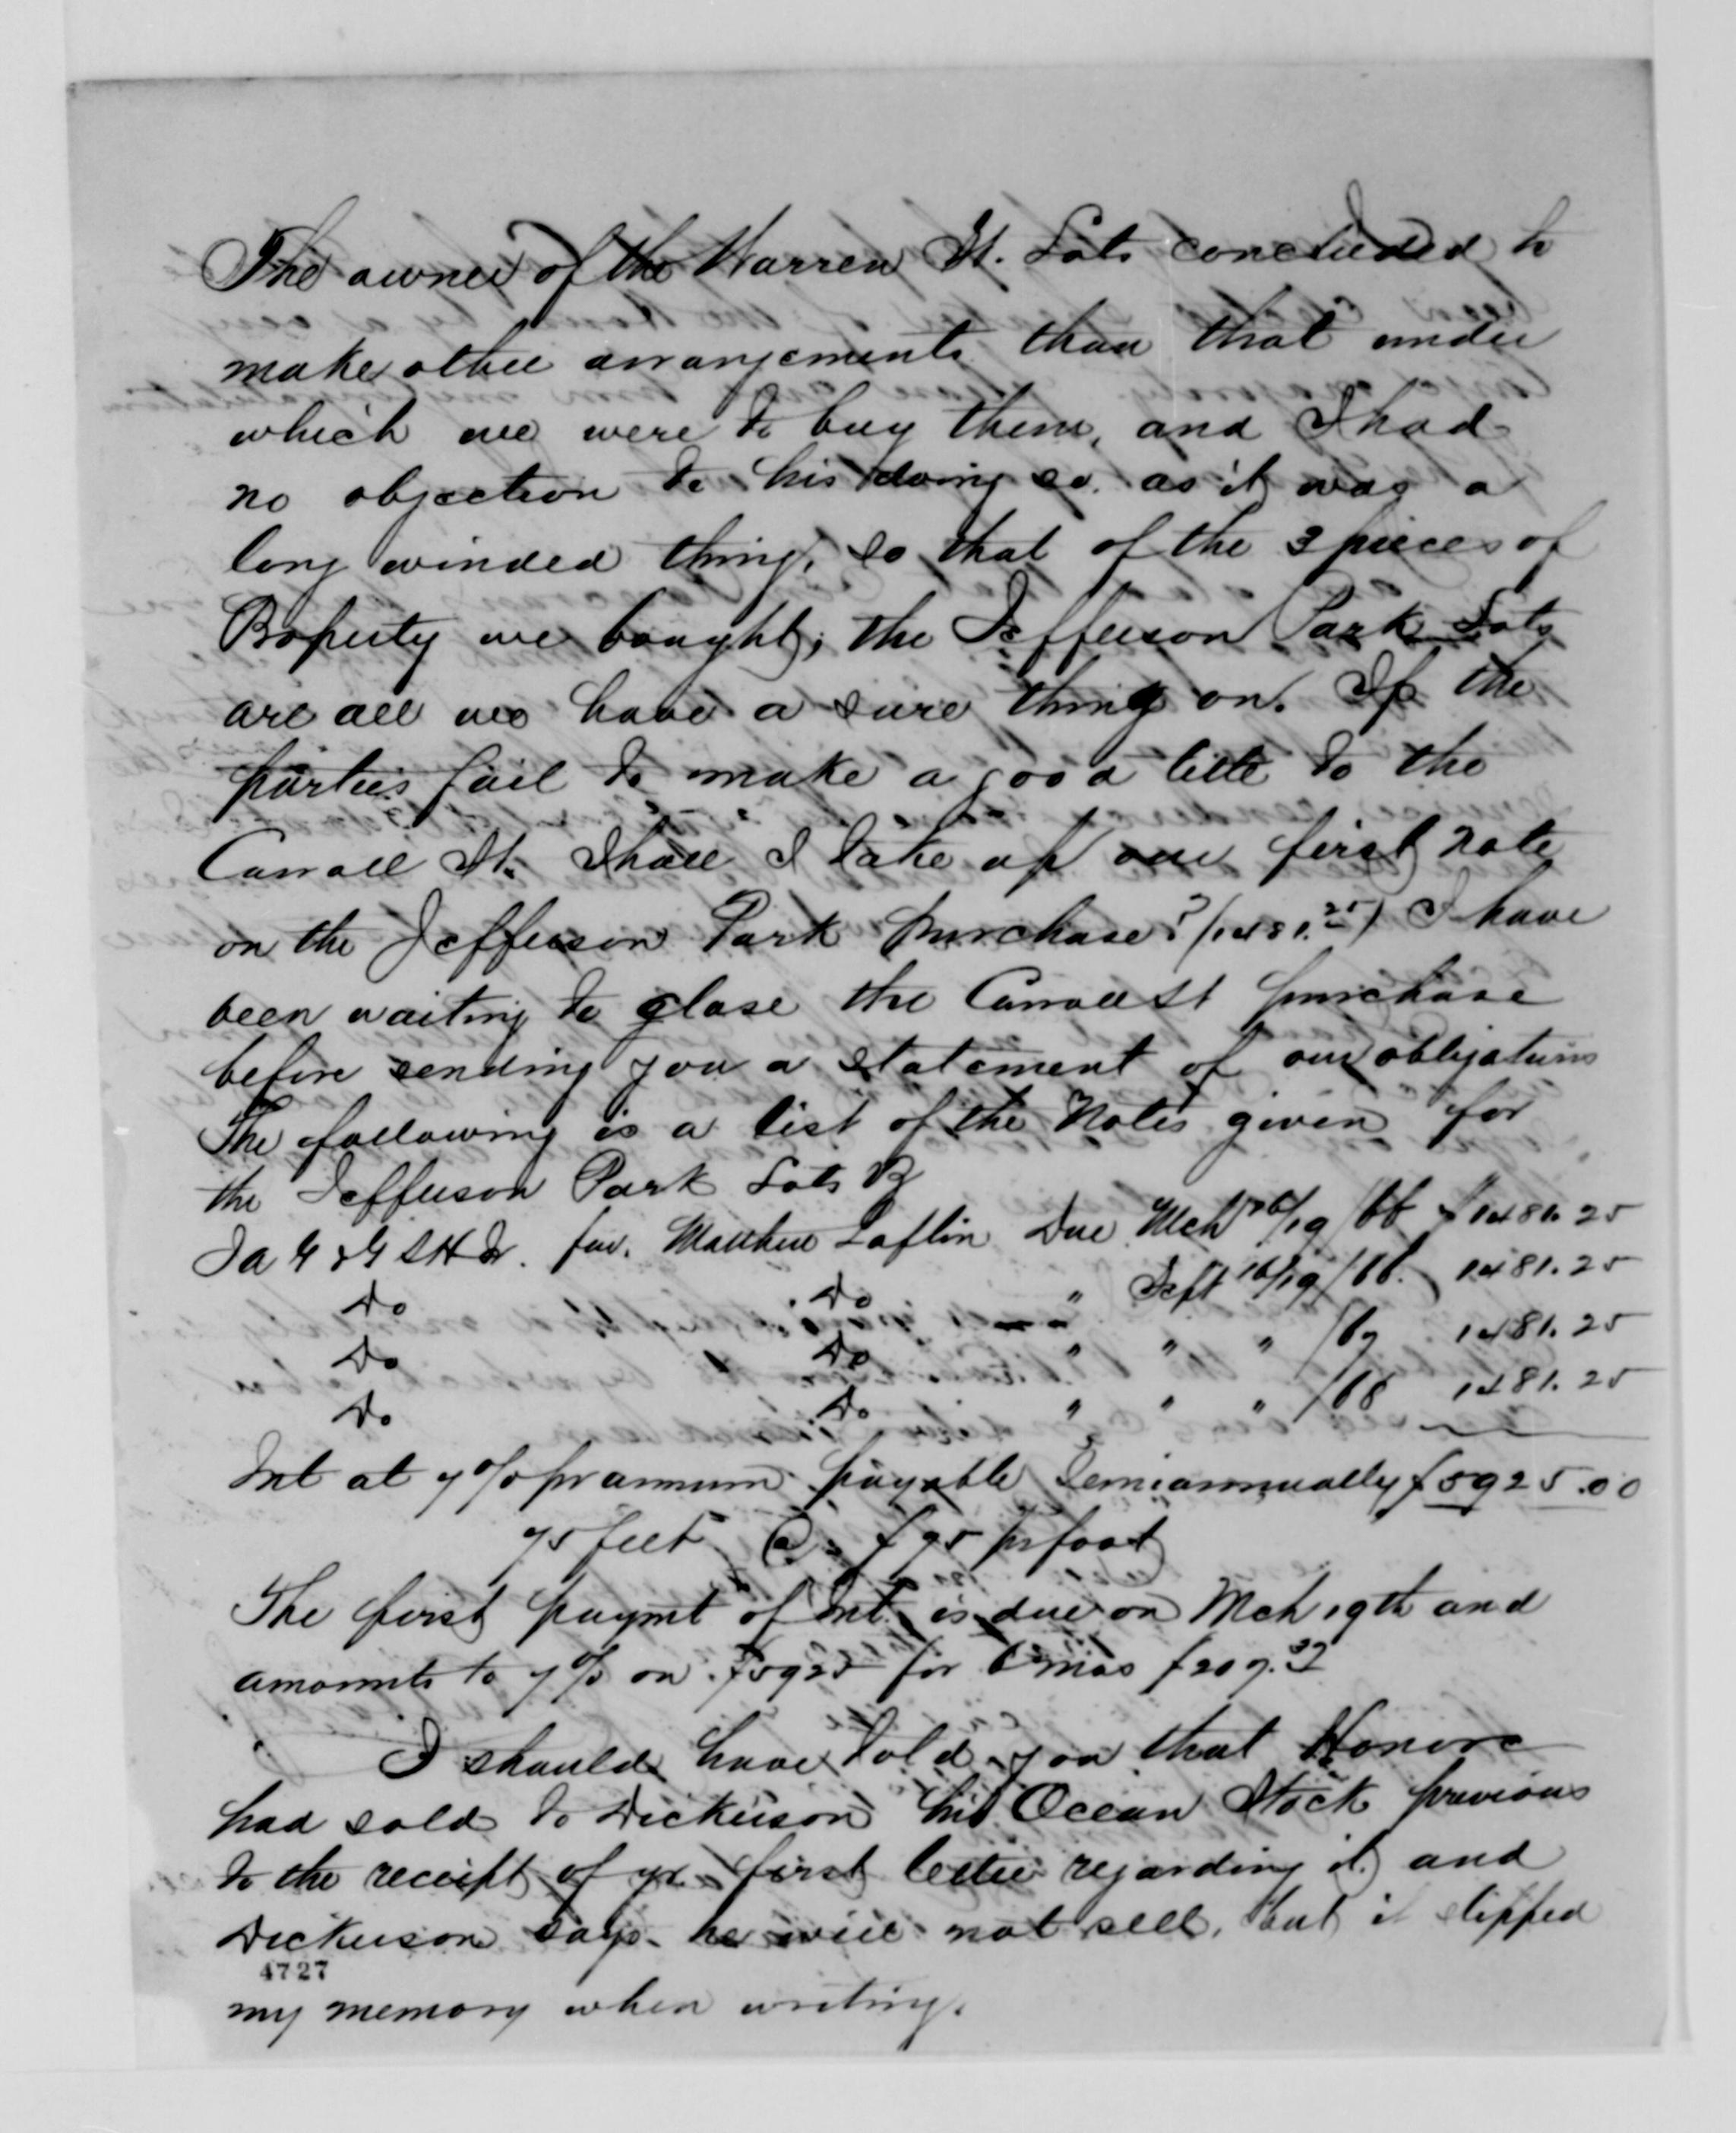 The owner of the Warren St. Lots concluded to
make other arrangements than that under
which we were to buy them, and I had
no objection to his doing so. as it was a
long winded thing, so that of the 3 pieces of
Property we bought, the Jefferson Park Lots
are all we have a sure thing on. If the
parties fail to make a good title to the
Carroll St. Shall I take up our first note
on the Jefferson Park purchase? (1481.25) I have
been waiting to close the Carroll St purchase
before sending you a statement of our obligations
The following is a list of the Notes given for
the Jefferson Park Lots
fav. Matthew Laflin Due Mch 16/19 /66 $1481.25
Do Do " Sept 16/19 /66. 1481.25
Do Do " " " /67 1481.25
Do Do " " " /68 1481.25
Int at 7% pr annum payable Semiannually $5925.00
75 feet @ $ 95 pr foot
The first paymt of Int. is due on Mch 19th and
amounts to 7% on $5925 for 6 mos $207.37
I should have told you that Honore
had sold to Dickerson his Ocean Stock previous
to the receipt of yr first letter regarding it, and
Dickerson says he will not sell, but it slipped
4727
my memory when writing.